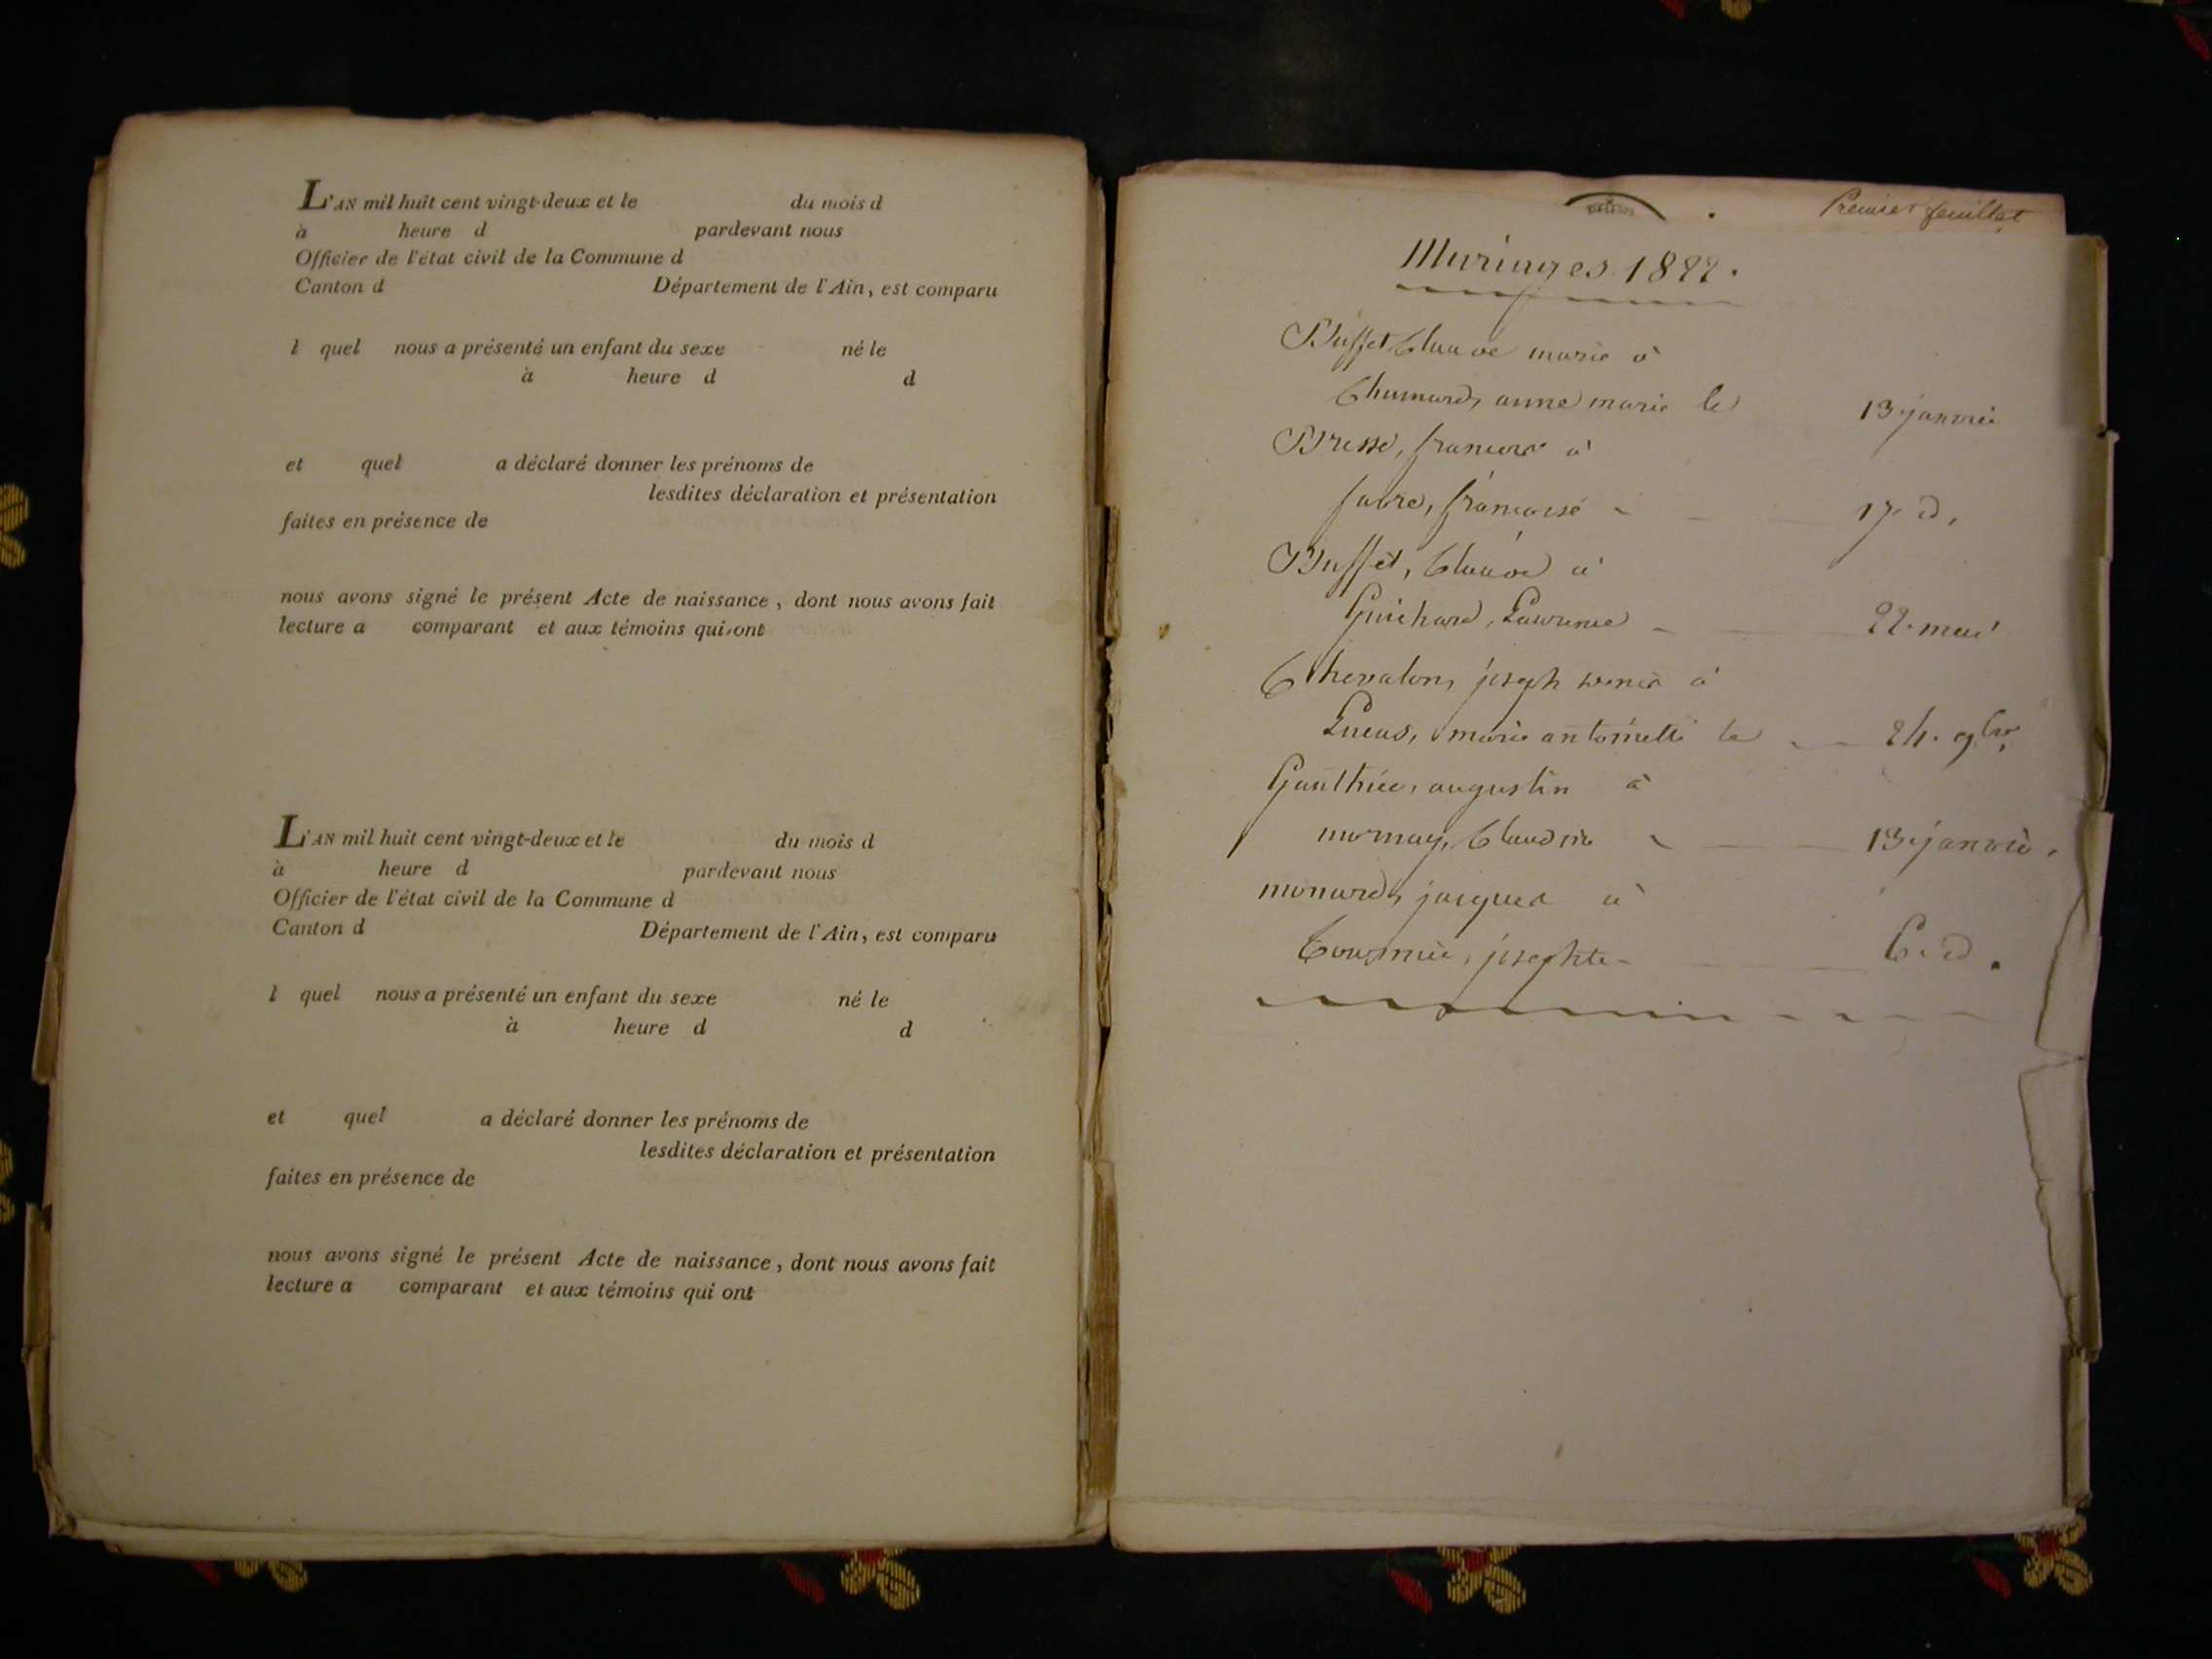 L'AN mil huit cent vingt-deux et le du mois d
à heure d pardevant nous
Officier de l'état civil de la Commune d
Canton d Département de l'Ain, est comparu
l quel nous a présenté un enfant du sexe né le
à heure d d
et quel a déclaré donner les prénoms de
lesdites déclaration et présentation
faites en présence de
nous avons signé le présent Acte de naissance, dont nous avons fait
lecture a comparant et aux témoins qui ont
L'AN mil huit cent vingt-deux et le du mois d
à heure d pardevant nous
Officier de l'état civil de la Commune d
Canton d Département de l'Ain, est comparu
l quel nous a présenté un enfant du sexe né le
à heure d d
et quel a déclaré donner les prénoms de
lesdites déclaration et présentation
faites en présence de
nous avons signé le présent Acte de naissance, dont nous avons fait
lecture a comparant et aux témoins qui ont
Premier feuillet
Mariages 1822.
Buffet Claude marie à
Chanard, anne marie le 13 janvier
Bresse, francois à
favre, francoise 17 d.
Buffet, Claude à
Guichard, Laurence 22. mai
Chevalon, joseph à
Lucas, marie antoinette le 24. 9bre
Gauthier, augustin à
Claudine 13 janvier.
monard, jacques à
Tournier, josephte 6. d.